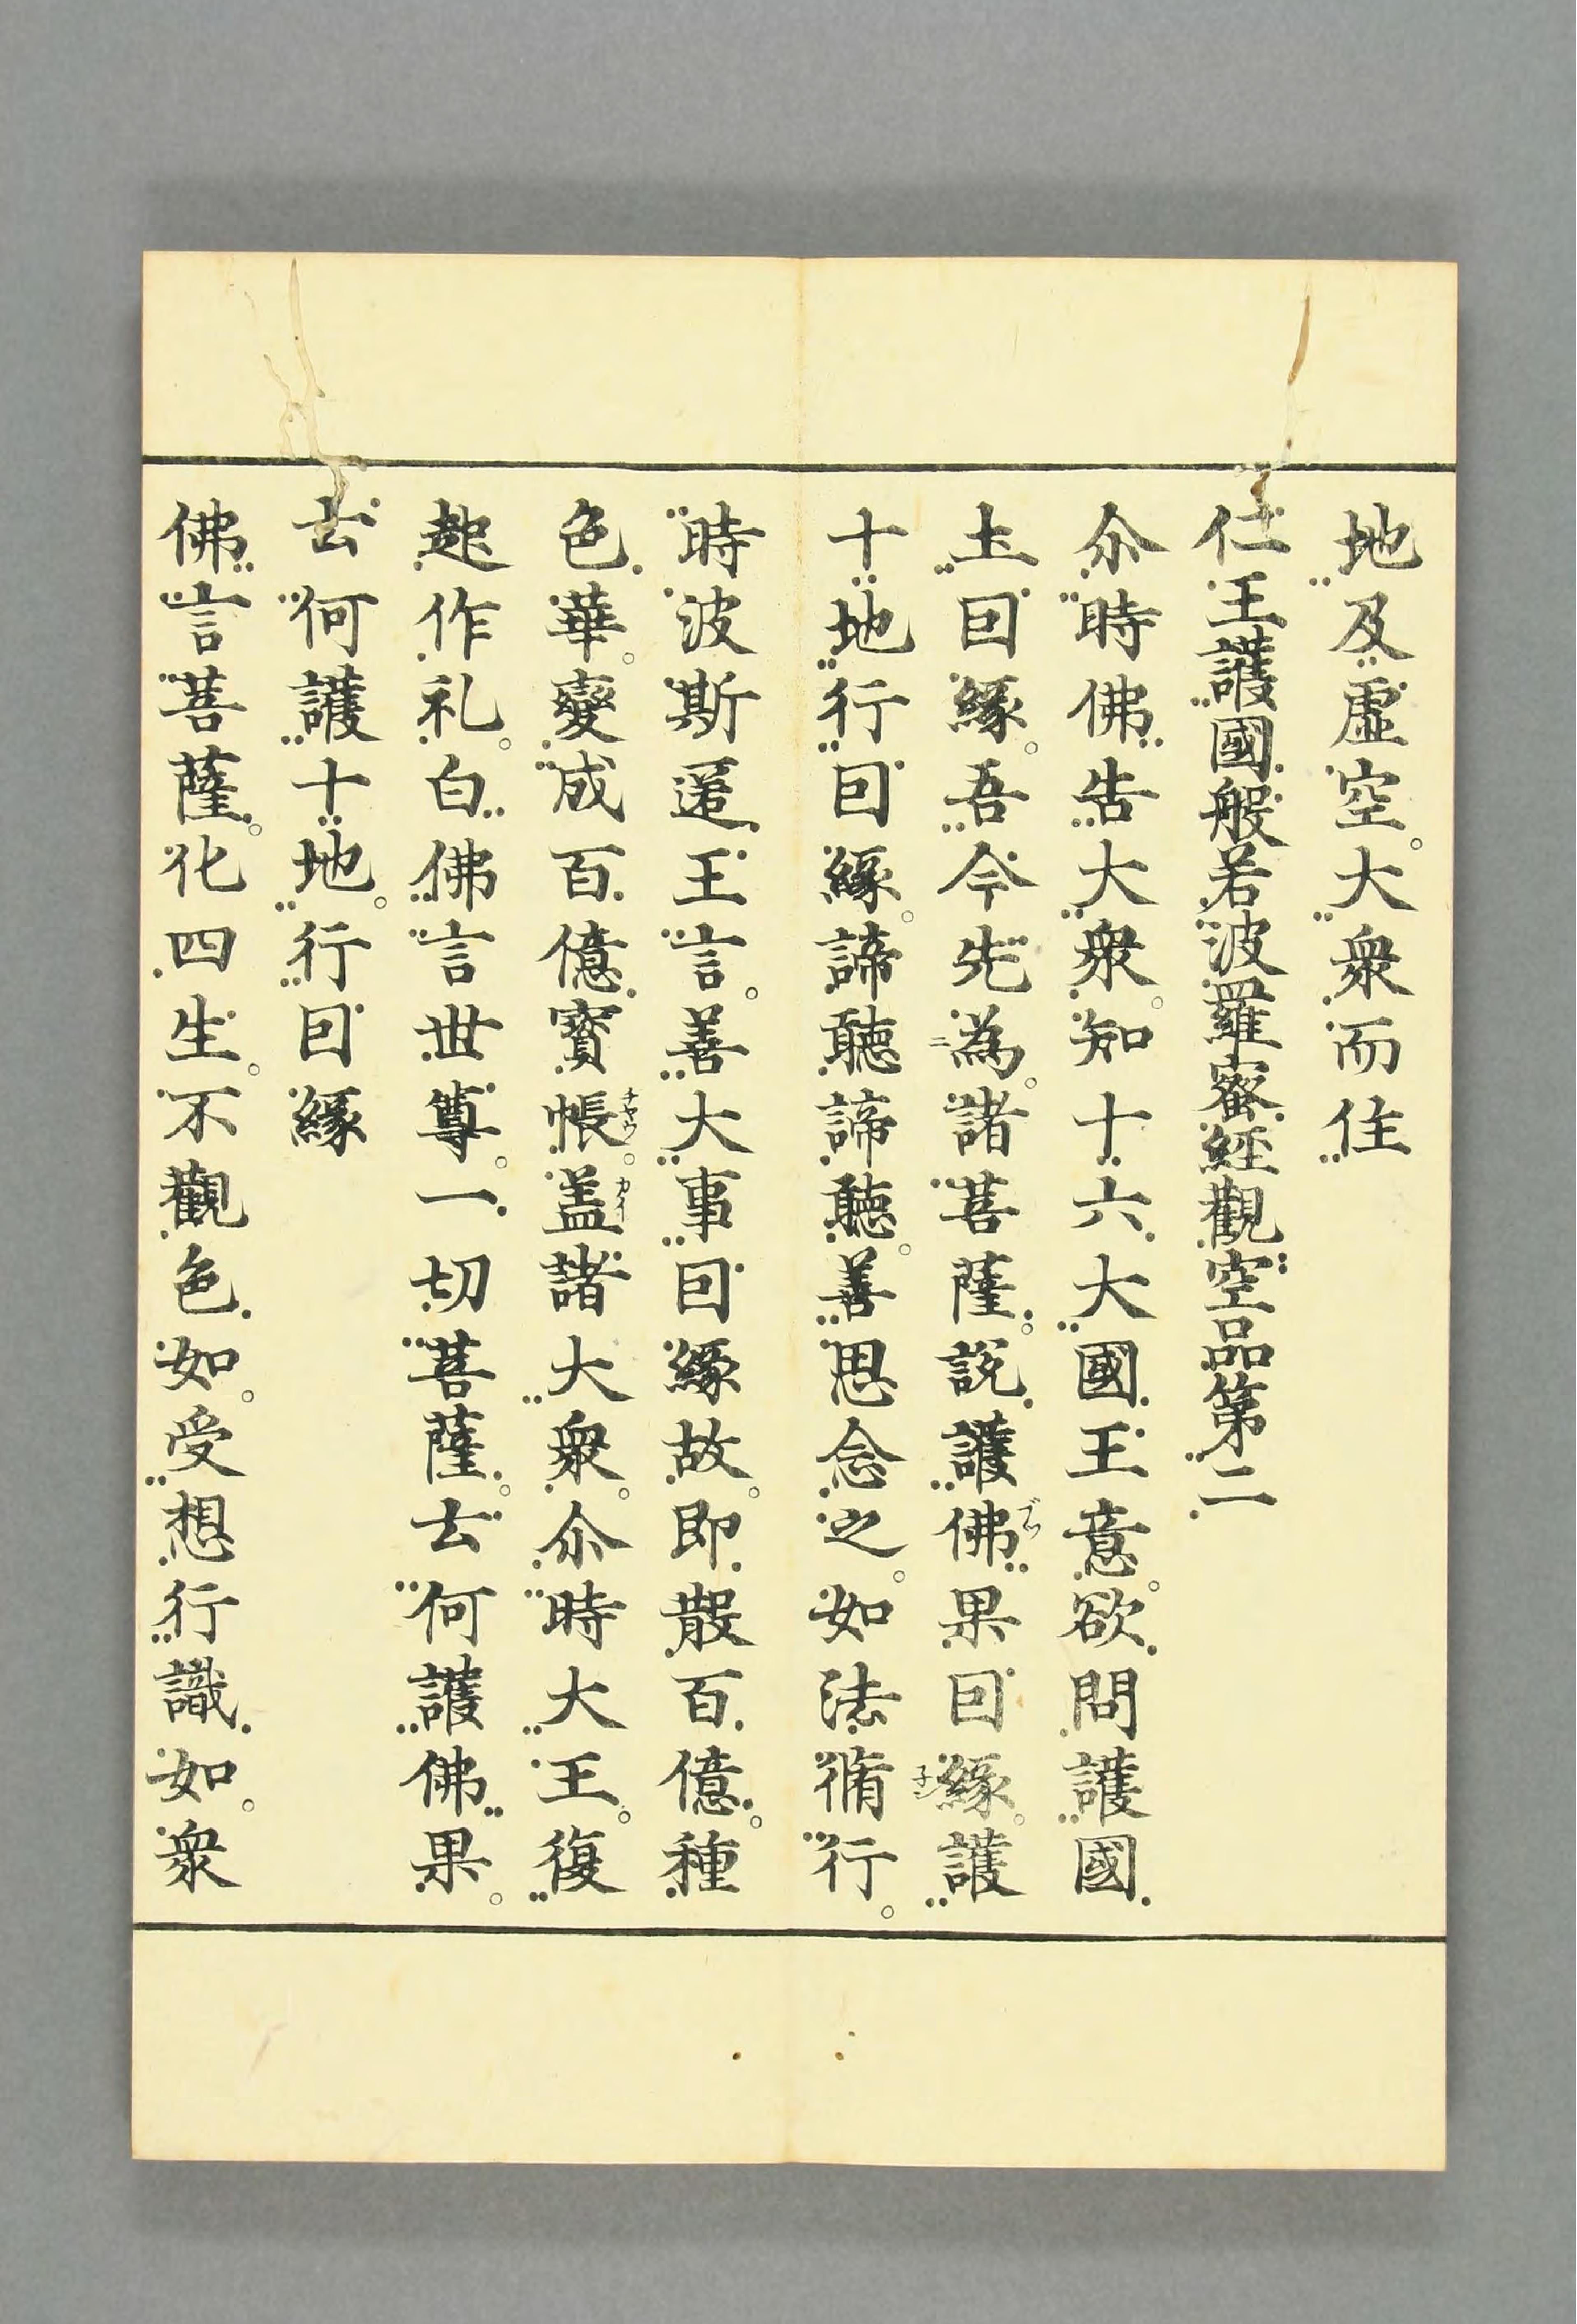 地及虛空。大衆而住
仁王護國般若波羅蜜經觀空品第二
尒時佛告大衆。知十六大國王意。欲問護國
土因緣。吾今先為。諸菩薩。說護佛果因緣。護
十地行因緣。諦聽諦聽。善思念之。如法脩行。
時波斯匿王言。善大事因緣故。即散百億。種
色華。變成百億寳帳。盖諸大衆。尒時大王。復
起作礼。白佛言世尊。一切菩薩。云何護佛果。
云何護十地。行因緣
佛言菩薩。化四生。不觀色如。受想行識如。衆